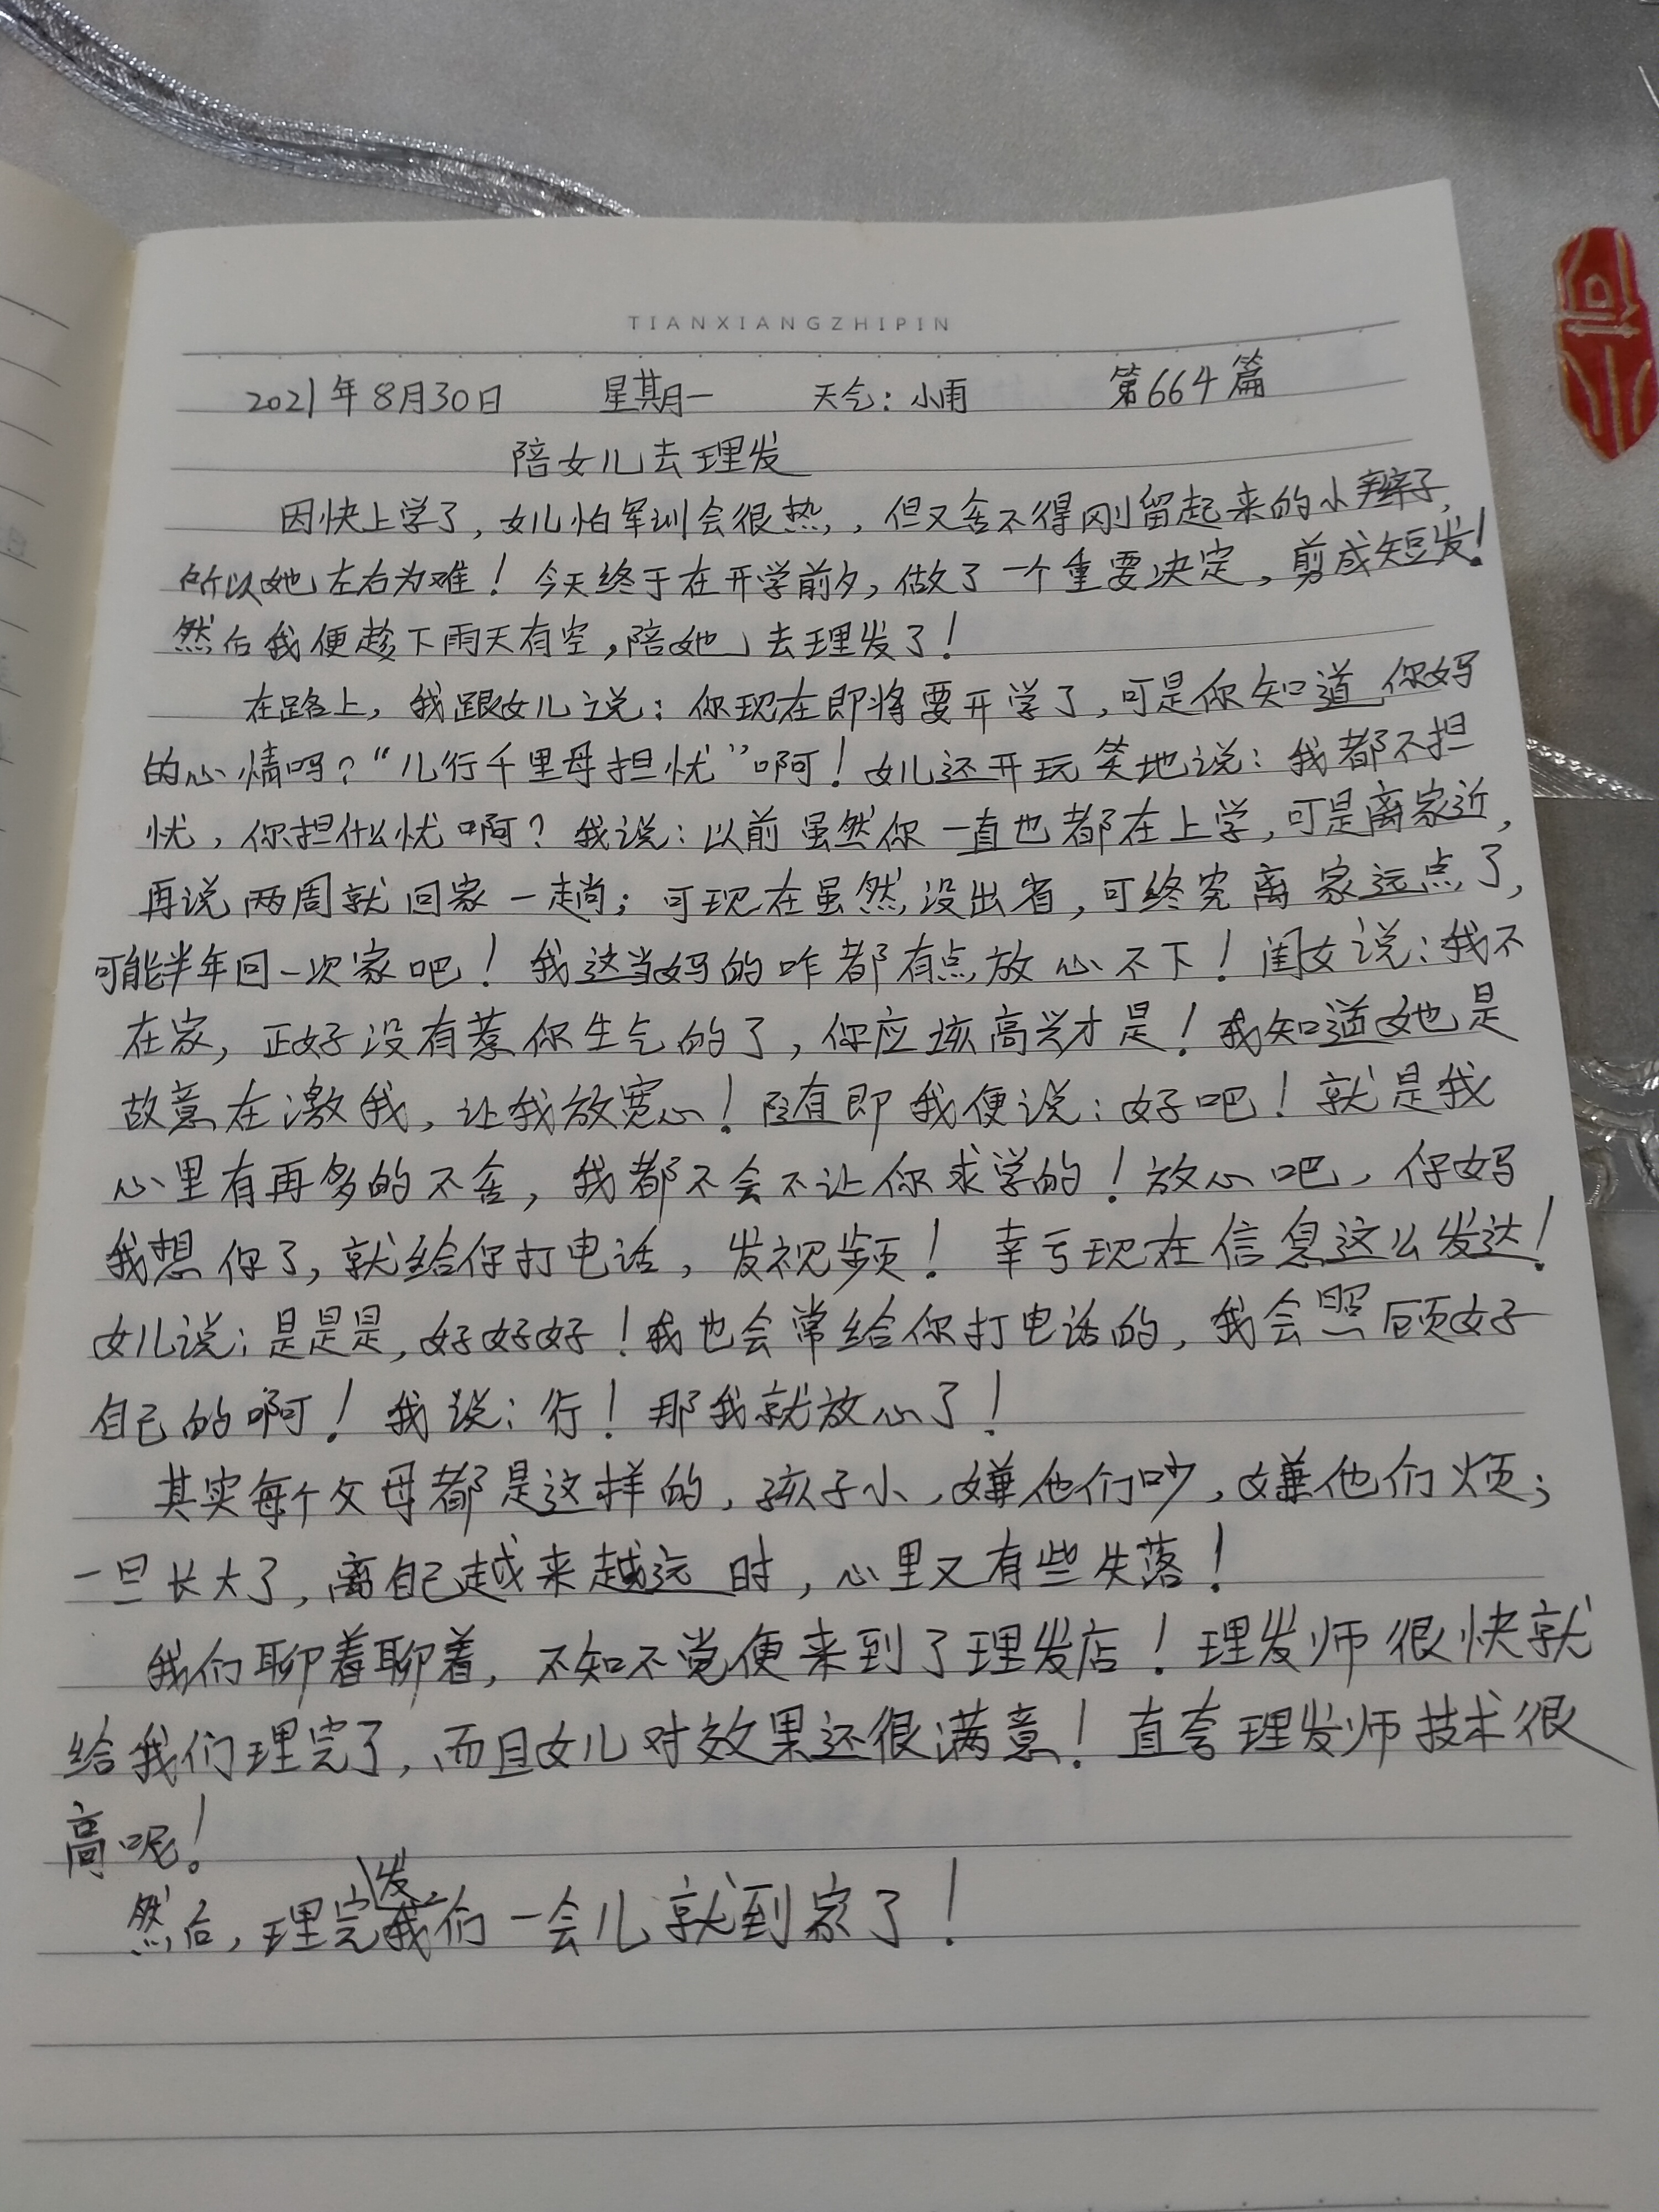 TIANXIANGZHIPIN
2021年8月30日 星期一 天气：小雨 第664篇
陪女儿去理发
因快上学了，女儿怕军训会很热，，但又舍不得刚留起来的小辫子，
所以她左右为难！今天终于在开学前夕，做了一个重要决定，剪成短发！
然后我便趁下雨天有空，陪她去理发了！
在路上，我跟女儿说：你现在即将要开学了，可是你知道你妈
的心情吗？“儿行千里母担忧”啊！女儿还开玩笑地说：我都不担
忧，你担什么忧啊？我说：以前虽然你一直也都在上学，可是离家近，
再说两周就回家一趟；可现在虽然没出省，可终究离家远点了，
可能半年回一次家吧！我这当妈的咋都有点放心不下！闺女说：我不
在家，正好没有惹你生气的了，你应该高兴才是！我知道她是
故意在激我，让我放宽心！随即我便说：好吧！就是我
心里有再多的不舍，我都不会不让你求学的！放心吧，你妈
我想你了，就给你打电话，发视频！幸亏现在信息这么发达！
女儿说：是是是，好好好！我也会常给你打电话的，我会照顾好
自己的啊！我说：行！那我就放心了！
其实每个父母都是这样的，孩子小，嫌他们吵，嫌他们烦；
一旦长大了，离自己越来越远时，心里又有些失落！
我们聊着聊着，不知不觉便来到了理发店！理发师很快就
给我们理完了，而且女儿对效果还很满意！直夸理发师技术很
高呢！
然后，理完发我们一会儿就到家了！